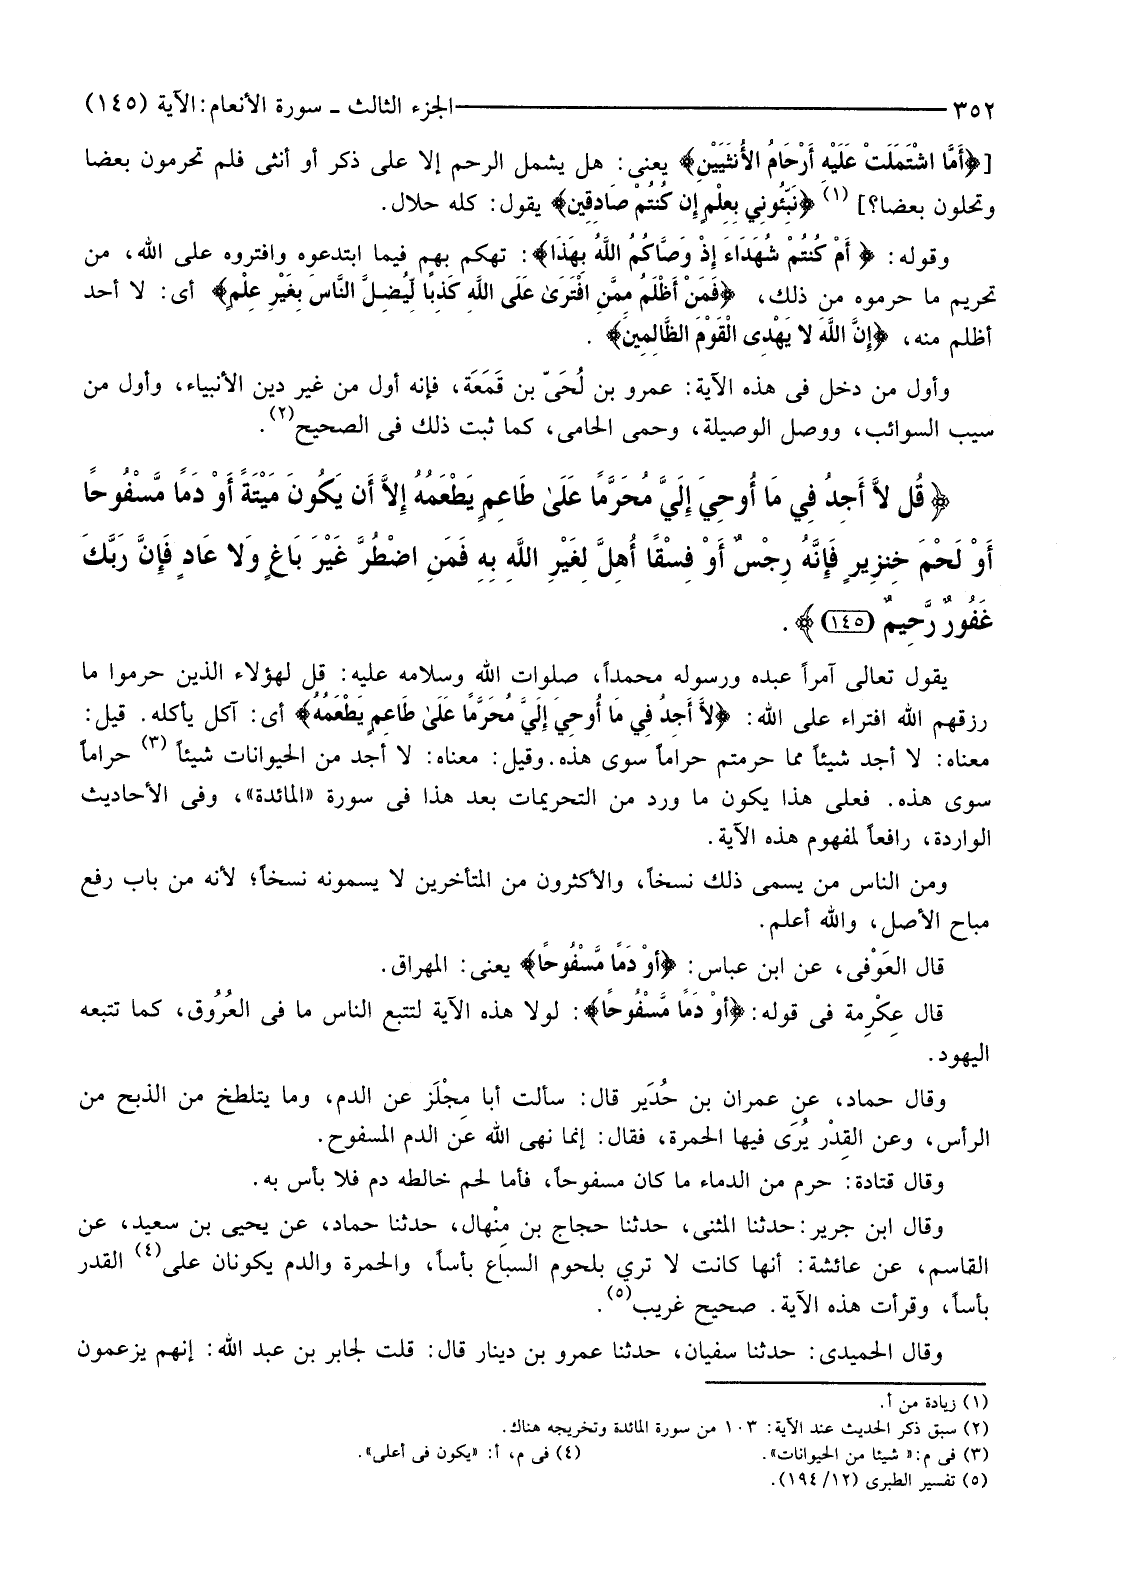 ٣٥٢ ـــــــــ الجزء الثالث ـ سورة الأنعام: الآية (١٤٥)
[﴿أَمَّا اشْتَمَلَتْ عَلَيْهِ أَرْحَامُ الأُنثَيَيْنِ﴾ يعنى: هل يشمل الرحم إلا على ذكر أو أنثى فلم تحرمون بعضا
وتحلون بعضا؟] (١) ﴿نَبِّئُونِي بِعِلْمٍ إِن كُنتُمْ صَادِقِين﴾ يقول: كله حلال.
وقوله: ﴿ أَمْ كُنتُمْ شُهَدَاءَ إِذْ وَصَّاكُمُ اللَّهُ بِهَذَا﴾: تهكم بهم فيما ابتدعوه وافتروه على الله، من
تحريم ما حرموه من ذلك، ﴿فَمَنْ أَظْلَمُ مِمَّنِ افْتَرَىٰ عَلَى اللَّهِ كَذِبًا لِّيُضِلَّ النَّاسَ بِغَيْرِ عِلْمٍ﴾ أى: لا أحد
أظلم منه، ﴿إِنَّ اللَّهَ لا يَهْدِى الْقَوْمَ الظَّالِمِينَ﴾ .
وأول من دخل فى هذه الآية: عمرو بن لُحَىّ بن قَمَعَة، فإنه أول من غير دين الأنبياء، وأول من
سيب السوائب، ووصل الوصيلة، وحمى الحامى، كما ثبت ذلك فى الصحيح(٢).
﴿قُل لاَّ أَجِدُ فِي مَا أُوحِيَ إِلَيَّ مُحَرَّمًا عَلَىٰ طَاعِمٍ يَطْعَمُهُ إِلاَّ أَن يَكُونَ مَيْتَةً أَوْ دَمًا مَّسْفُوحًا
أَوْ لَحْمَ خِنزِيرٍ فَإِنَّهُ رِجْسٌ أَوْ فِسْقًا أُهِلَّ لِغَيْرِ اللَّهِ بِهِ فَمَنِ اضْطُرَّ غَيْرَ بَاغٍ وَلا عَادٍ فَإِنَّ رَبَّكَ
غَفُورٌ رَّحِيمٌ (١٤٥)﴾ .
يقول تعالى آمراً عبده ورسوله محمداً، صلوات الله وسلامه عليه: قل لهؤلاء الذين حرموا ما
رزقهم الله افتراء على الله: ﴿لاَّ أَجِدُ فِي مَا أُوحِيَ إِلَيَّ مُحَرَّمًا عَلَىٰ طَاعِمٍ يَطْعَمُهُ﴾ أى: آكل يأكله. قيل:
معناه: لا أجد شيئاً مما حرمتم حراماً سوى هذه. وقيل: معناه: لا أجد من الحيوانات شيئاً (٣) حراماً
سوى هذه. فعلى هذا يكون ما ورد من التحريمات بعد هذا فى سورة «المائدة»، وفى الأحاديث
الواردة، رافعاً لمفهوم هذه الآية.
ومن الناس من يسمى ذلك نسخاً، والأكثرون من المتأخرين لا يسمونه نسخاً؛ لأنه من باب رفع
مباح الأصل، والله أعلم.
قال العَوْفى، عن ابن عباس: ﴿أَوْ دَمًا مَّسْفُوحًا﴾ يعنى: المهراق.
قال عِكْرِمة فى قوله: ﴿أَوْ دَمًا مَّسْفُوحًا﴾: لولا هذه الآية لتتبع الناس ما فى العُرُوق، كما تتبعه
اليهود.
وقال حماد، عن عمران بن حُدَير قال: سألت أبا مِجْلَز عن الدم، وما يتلطخ من الذبح من
الرأس، وعن القِدْر يُرَى فيها الحمرة، فقال: إنما نهى الله عن الدم المسفوح.
وقال قتادة: حرم من الدماء ما كان مسفوحاً، فأما لحم خالطه دم فلا بأس به.
وقال ابن جرير: حدثنا المثنى، حدثنا حجاج بن مِنْهال، حدثنا حماد، عن يحيى بن سعيد، عن
القاسم، عن عائشة: أنها كانت لا تري بلحوم السبَاع بأساً، والحمرة والدم يكونان على(٤) القدر
بأساً، وقرأت هذه الآية. صحيح غريب(٥).
وقال الحميدى: حدثنا سفيان، حدثنا عمرو بن دينار قال: قلت لجابر بن عبد الله: إنهم يزعمون
(١) زيادة من أ.
(٢) سبق ذكر الحديث عند الآية: ١٠٣ من سورة المائدة وتخريجه هناك.
(٣) فى م: « شيئا من الحيوانات». (٤) فى م، أ: «يكون فى أعلى».
(٥) تفسير الطبرى (١٢/ ١٩٤).